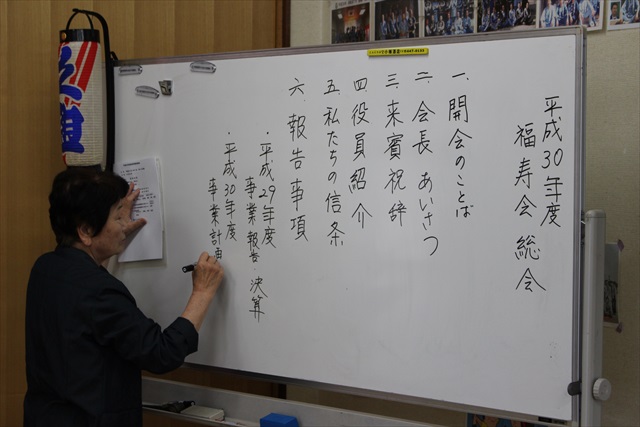 平成30年度
福寿会総会
一.開会のことば
二.会長あいさつ
三.来賓祝辞
四.役員紹介
五.私たちの信条
六.報告事項
・平成29年度
事業報告・決算
・平成30年度
事業計画